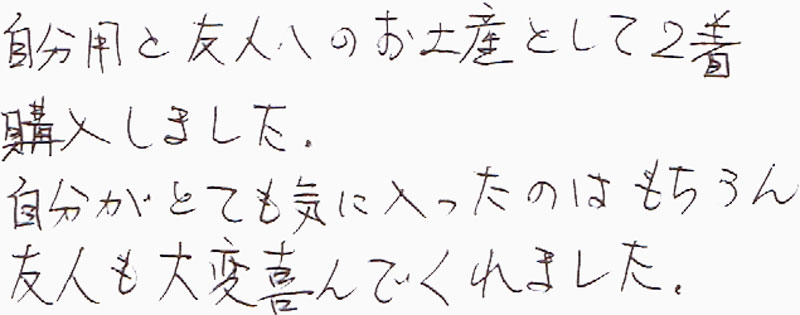 自分用と友人へのお土産として2着
購入しました.
自分がとても気に入ったのはもちろん
友人も大変喜んでくれました.